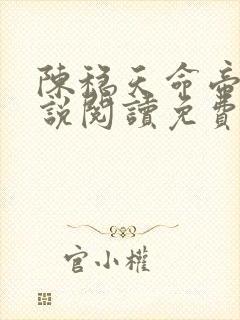 陳稳天命帝
說閱讀免費
官小權